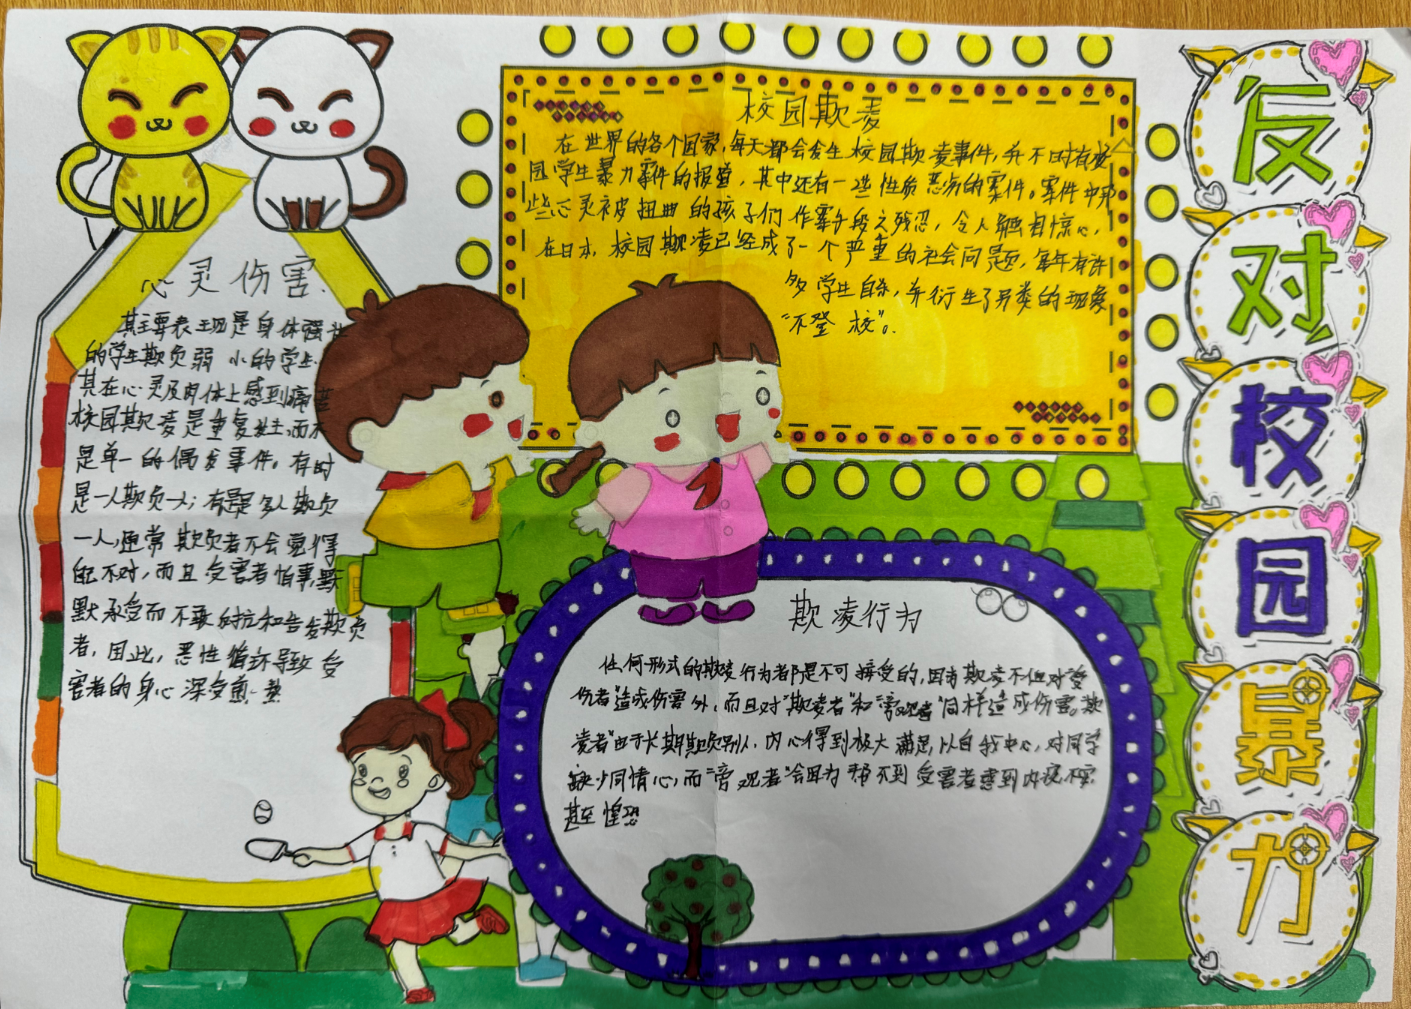 反对校园暴力
校园欺凌
在世界的各个国家,每天都会发生校园欺凌事件,并不时有校
园学生暴力案件的报道,其中还有一些性质恶劣的案件。案件中那
些心灵被扭曲的孩子们作案手段之残忍,令人触目惊心,
在日本,校园欺凌已经成了一个严重的社会问题,每年有许
多学生自杀,并衍生了另类的现象
“不登校”。
心灵伤害
其主要表现是身体强壮
的学生欺负弱小的学生.
其在心灵及肉体上感到痛苦
校园欺凌是重复发生,而不
是单一的偶发事件。有时
是一人欺负一人;有时是多人欺负
一人,通常欺负者不会觉得
自己不对,而且受害者怕事,默
默承受而不敢反抗和告发欺负
者,因此,恶性循环导致受
害者的身心深受煎熬
欺凌行为
任何形式的欺凌行为者都是不可接受的,因为欺凌不但对“受
伤者”造成伤害外,而且对“欺凌者”和“旁观者”同样造成伤害。欺
凌者”由于长期欺负别人,内心得到极大满足,以自我中心,对同学
缺少同情心,而“旁观者”会因为帮不到受害者感到内疚不安
甚至惶恐